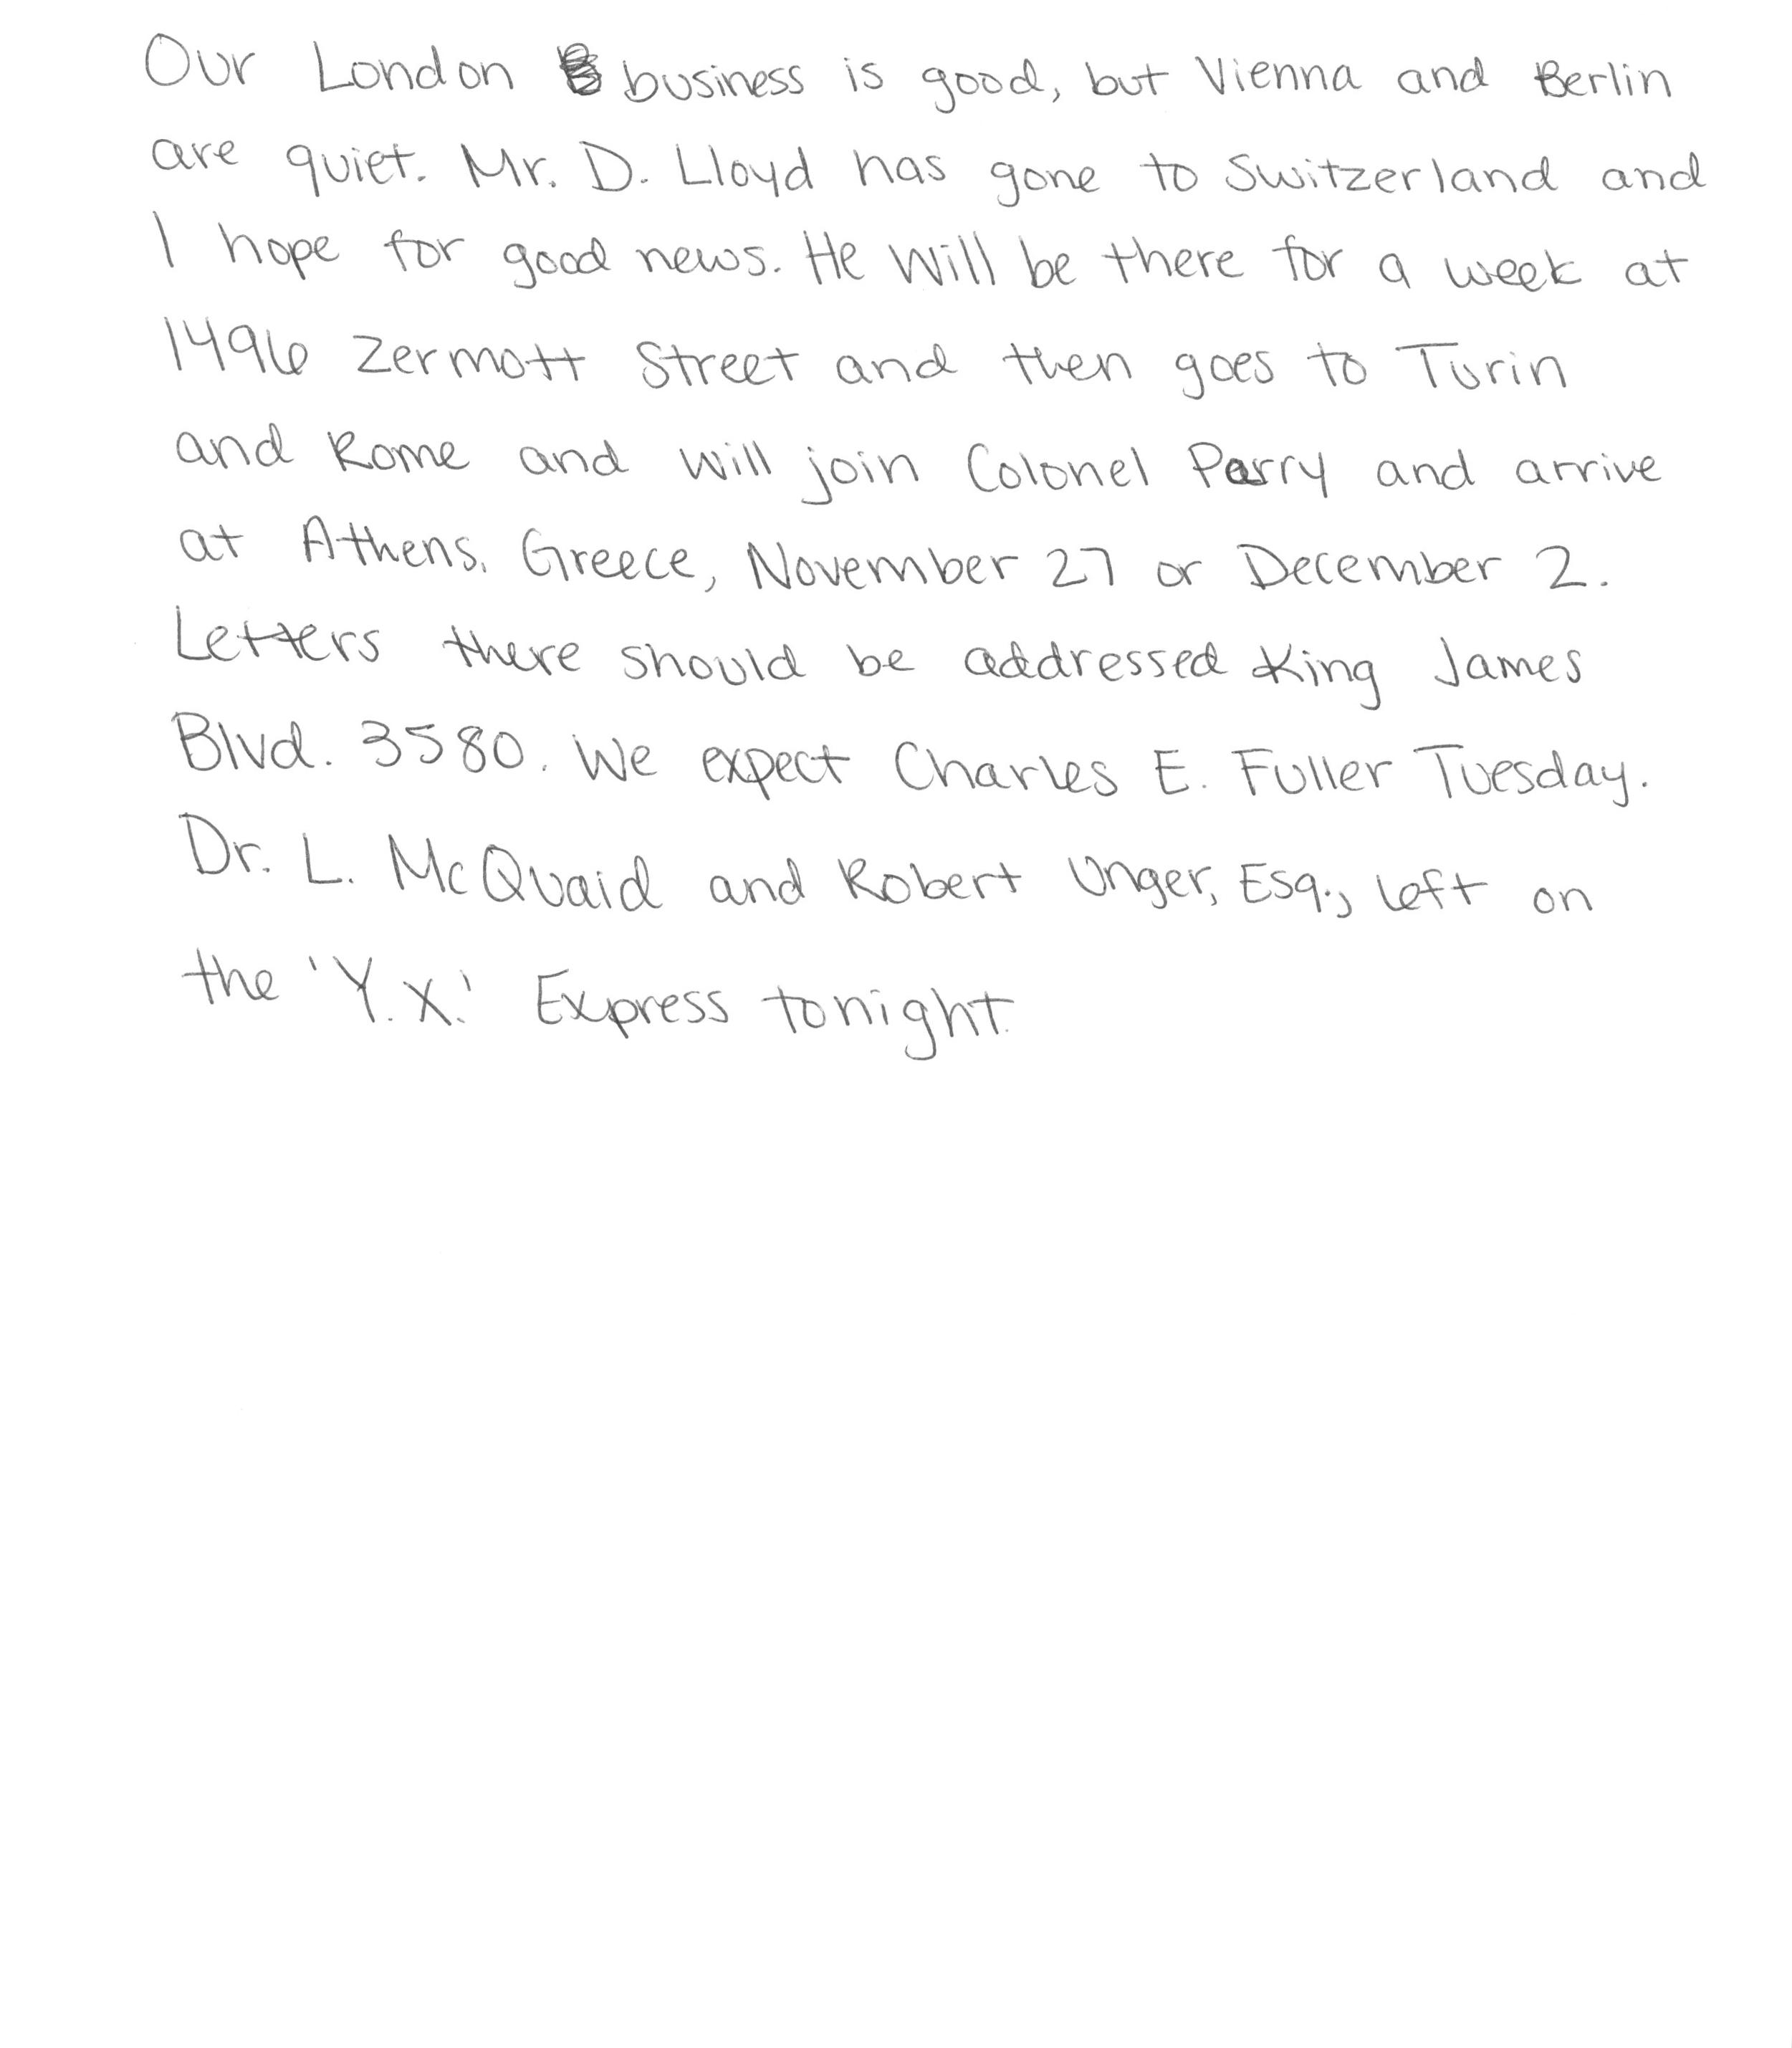 Our London business is good, but Vienna and Berlin
are quiet. Mr. D. Lloyd has gone to Switzerland and
I hope for good news. He will be there for a week at
1496 Zermott Street and then goes to Turin
and Rome and will join Colonel Parry and arrive
at Athens, Greece, November 27 or December 2.
Letters there should be addressed King James
Blvd. 3580. We expect Charles E. Fuller Tuesday.
Dr. L. McQuaid and Robert Unger, Esq., left on
the 'Y.X.' Express tonight.